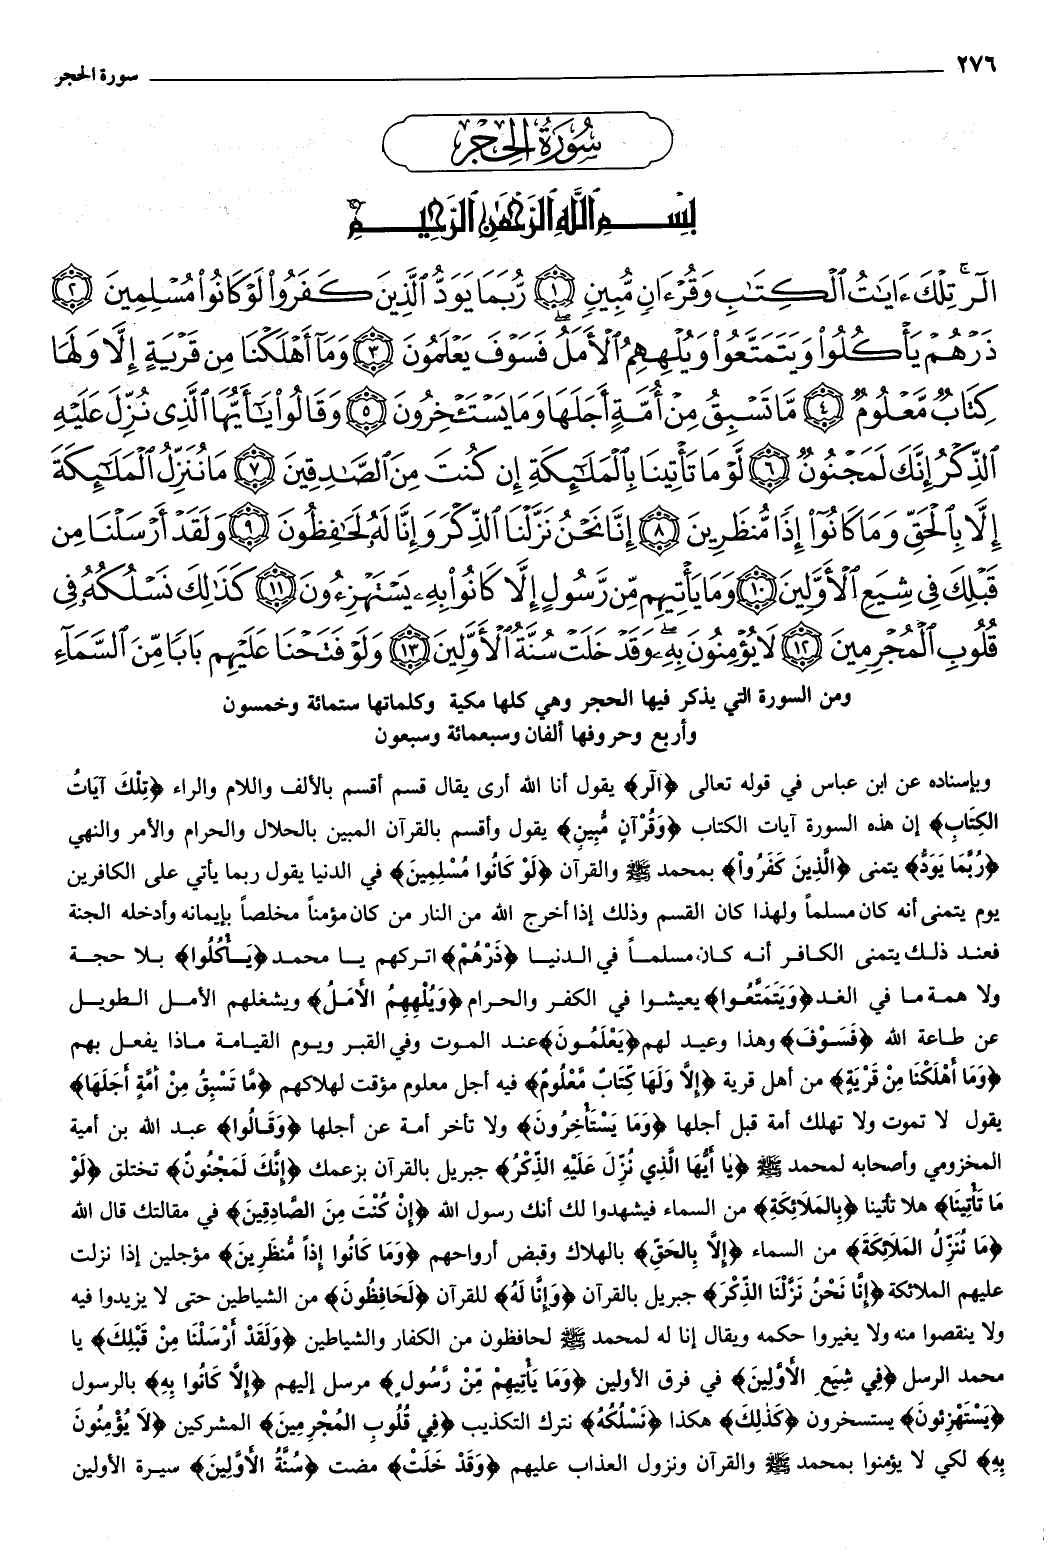 ٢٧٦ سورة الحجر
سُورَةُ الحِجْرِ
بِسْمِ ٱللَّهِ ٱلرَّحْمَٰنِ ٱلرَّحِيمِ
الٓر ۚ تِلْكَ ءَايَٰتُ ٱلْكِتَٰبِ وَقُرْءَانٍ مُّبِينٍ ١ رُّبَمَا يَوَدُّ ٱلَّذِينَ كَفَرُوا۟ لَوْ كَانُوا۟ مُسْلِمِينَ ٢
ذَرْهُمْ يَأْكُلُوا۟ وَيَتَمَتَّعُوا۟ وَيُلْهِهِمُ ٱلْأَمَلُ ۖ فَسَوْفَ يَعْلَمُونَ ٣ وَمَآ أَهْلَكْنَا مِن قَرْيَةٍ إِلَّا وَلَهَا
كِتَابٌ مَّعْلُومٌ ٤ مَّا تَسْبِقُ مِنْ أُمَّةٍ أَجَلَهَا وَمَا يَسْتَـْٔخِرُونَ ٥ وَقَالُوا۟ يَٰٓأَيُّهَا ٱلَّذِى نُزِّلَ عَلَيْهِ
ٱلذِّكْرُ إِنَّكَ لَمَجْنُونٌ ٦ لَّوْ مَا تَأْتِينَا بِٱلْمَلَٰٓئِكَةِ إِن كُنتَ مِنَ ٱلصَّٰدِقِينَ ٧ مَا نُنَزِّلُ ٱلْمَلَٰٓئِكَةَ
إِلَّا بِٱلْحَقِّ وَمَا كَانُوٓا۟ إِذًا مُّنظَرِينَ ٨ إِنَّا نَحْنُ نَزَّلْنَا ٱلذِّكْرَ وَإِنَّا لَهُۥ لَحَٰفِظُونَ ٩ وَلَقَدْ أَرْسَلْنَا مِن
قَبْلِكَ فِى شِيَعِ ٱلْأَوَّلِينَ ١٠ وَمَا يَأْتِيهِم مِّن رَّسُولٍ إِلَّا كَانُوا۟ بِهِۦ يَسْتَهْزِءُونَ ١١ كَذَٰلِكَ نَسْلُكُهُۥ فِى
قُلُوبِ ٱلْمُجْرِمِينَ ١٢ لَا يُؤْمِنُونَ بِهِۦ ۖ وَقَدْ خَلَتْ سُنَّةُ ٱلْأَوَّلِينَ ١٣ وَلَوْ فَتَحْنَا عَلَيْهِم بَابًا مِّنَ ٱلسَّمَآءِ
ومن السورة التي يذكر فيها الحجر وهي كلها مكية وكلماتها ستمائة وخمسون
وأربع وحروفها ألفان وسبعمائة وسبعون
وبإسناده عن ابن عباس في قوله تعالى ﴿الَر﴾ يقول أنا الله أرى يقال قسم أقسم بالألف واللام والراء ﴿تِلْكَ آيَاتُ
الكِتَابِ﴾ إن هذه السورة آيات الكتاب ﴿وَقُرْآنٍ مُّبِينٍ﴾ يقول وأقسم بالقرآن المبين بالحلال والحرام والأمر والنهي
﴿رُّبَمَا يَوَدُّ﴾ يتمنى ﴿الَّذِينَ كَفَرُواْ﴾ بمحمد ﷺ والقرآن ﴿لَوْ كَانُوا مُسْلِمِينَ﴾ في الدنيا يقول ربما يأتي على الكافرين
يوم يتمنى أنه كان مسلماً ولهذا كان القسم وذلك إذا أخرج الله من النار من كان مؤمناً مخلصاً بإيمانه وأدخله الجنة
فعند ذلك يتمنى الكافر أنه كان مسلماً في الدنيا ﴿ذَرْهُمْ﴾ اتركهم يا محمد ﴿يَأْكُلُوا﴾ بلا حجة
ولا همة ما في الغد ﴿وَيَتَمَتَّعُوا﴾ يعيشوا في الكفر والحرام ﴿وَيُلْهِهِمُ الأَمَلُ﴾ ويشغلهم الأمل الطويل
عن طاعة الله ﴿فَسَوْفَ﴾ وهذا وعيد لهم ﴿يَعْلَمُونَ﴾ عند الموت وفي القبر ويوم القيامة ماذا يفعل بهم
﴿وَمَا أَهْلَكْنَا مِنْ قَرْيَةٍ﴾ من أهل قرية ﴿إِلَّا وَلَهَا كِتَابٌ مَّعْلُومٌ﴾ فيه أجل معلوم مؤقت لهلاكهم ﴿مَّا تَسْبِقُ مِنْ أُمَّةٍ أَجَلَهَا﴾
يقول لا تموت ولا تهلك أمة قبل أجلها ﴿وَمَا يَسْتَأْخِرُونَ﴾ ولا تأخر أمة عن أجلها ﴿وَقَالُوا﴾ عبد الله بن أمية
المخزومي وأصحابه لمحمد ﷺ ﴿يٰا أَيُّهَا الَّذِي نُزِّلَ عَلَيْهِ الذِّكْرُ﴾ جبريل بالقرآن بزعمك ﴿إِنَّكَ لَمَجْنُونٌ﴾ تختلق ﴿لَوْ
مَا تَأْتِينَا﴾ هلا تأتينا ﴿بِالمَلَائِكَةِ﴾ من السماء فيشهدوا لك أنك رسول الله ﴿إِنْ كُنْتَ مِنَ الصَّادِقِينَ﴾ في مقالتك قال الله
﴿مَا نُنَزِّلُ المَلَائِكَةَ﴾ من السماء ﴿إِلَّا بِالحَقِّ﴾ بالهلاك وقبض أرواحهم ﴿وَمَا كَانُوا إِذاً مُّنظَرِينَ﴾ مؤجلين إذا نزلت
عليهم الملائكة ﴿إِنَّا نَحْنُ نَزَّلْنَا الذِّكْرَ﴾ جبريل بالقرآن ﴿وَإِنَّا لَهُ﴾ للقرآن ﴿لَحَافِظُونَ﴾ من الشياطين حتى لا يزيدوا فيه
ولا ينقصوا منه ولا يغيروا حكمه ويقال إنا له لمحمد ﷺ لحافظون من الكفار والشياطين ﴿وَلَقَدْ أَرْسَلْنَا مِنْ قَبْلِكَ﴾ يا
محمد الرسل ﴿فِي شِيَعِ الأَوَّلِينَ﴾ في فرق الأولين ﴿وَمَا يَأْتِيهِمْ مِّنْ رَّسُولٍ﴾ مرسل إليهم ﴿إِلَّا كَانُوا بِهِ﴾ بالرسول
﴿يَسْتَهْزِئونَ﴾ يستسخرون ﴿كَذٰلِكَ﴾ هكذا ﴿نَسْلُكُهُ﴾ نترك التكذيب ﴿فِي قُلُوبِ المُجْرِمِينَ﴾ المشركين ﴿لَا يُؤْمِنُونَ
بِهِ﴾ لكي لا يؤمنوا بمحمد ﷺ والقرآن ونزول العذاب عليهم ﴿وَقَدْ خَلَتْ﴾ مضت ﴿سُنَّةُ الأَوَّلِينَ﴾ سيرة الأولين